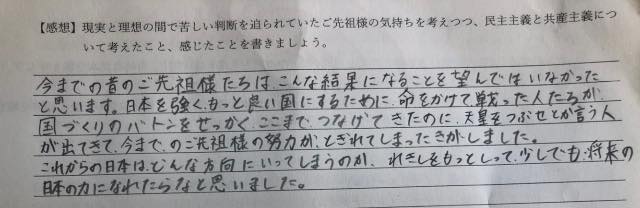 【感想】現実と理想の間で苦しい判断を迫られていたご先祖様の気持ちを考えつつ、民主主義と共産主義につ
いて考えたこと、感じたことを書きましょう。
今までの昔のご先祖様たちは、こんな結果になることを望んではいなかった
と思います。日本を強く、もっと良い国にするために、命をかけて戦った人たちが、
国づくりのバトンをせっかく、ここまで、つなげてきたのに、天皇をつぶせとか言う人
が出てきて、今まで、のご先祖様の努力が、とぎれてしまったきがしました。
これからの日本は、どんな方向にいってしまうのか、れきしをもっとしって、少しでも、将来の
日本の力になれたらなと思いました。